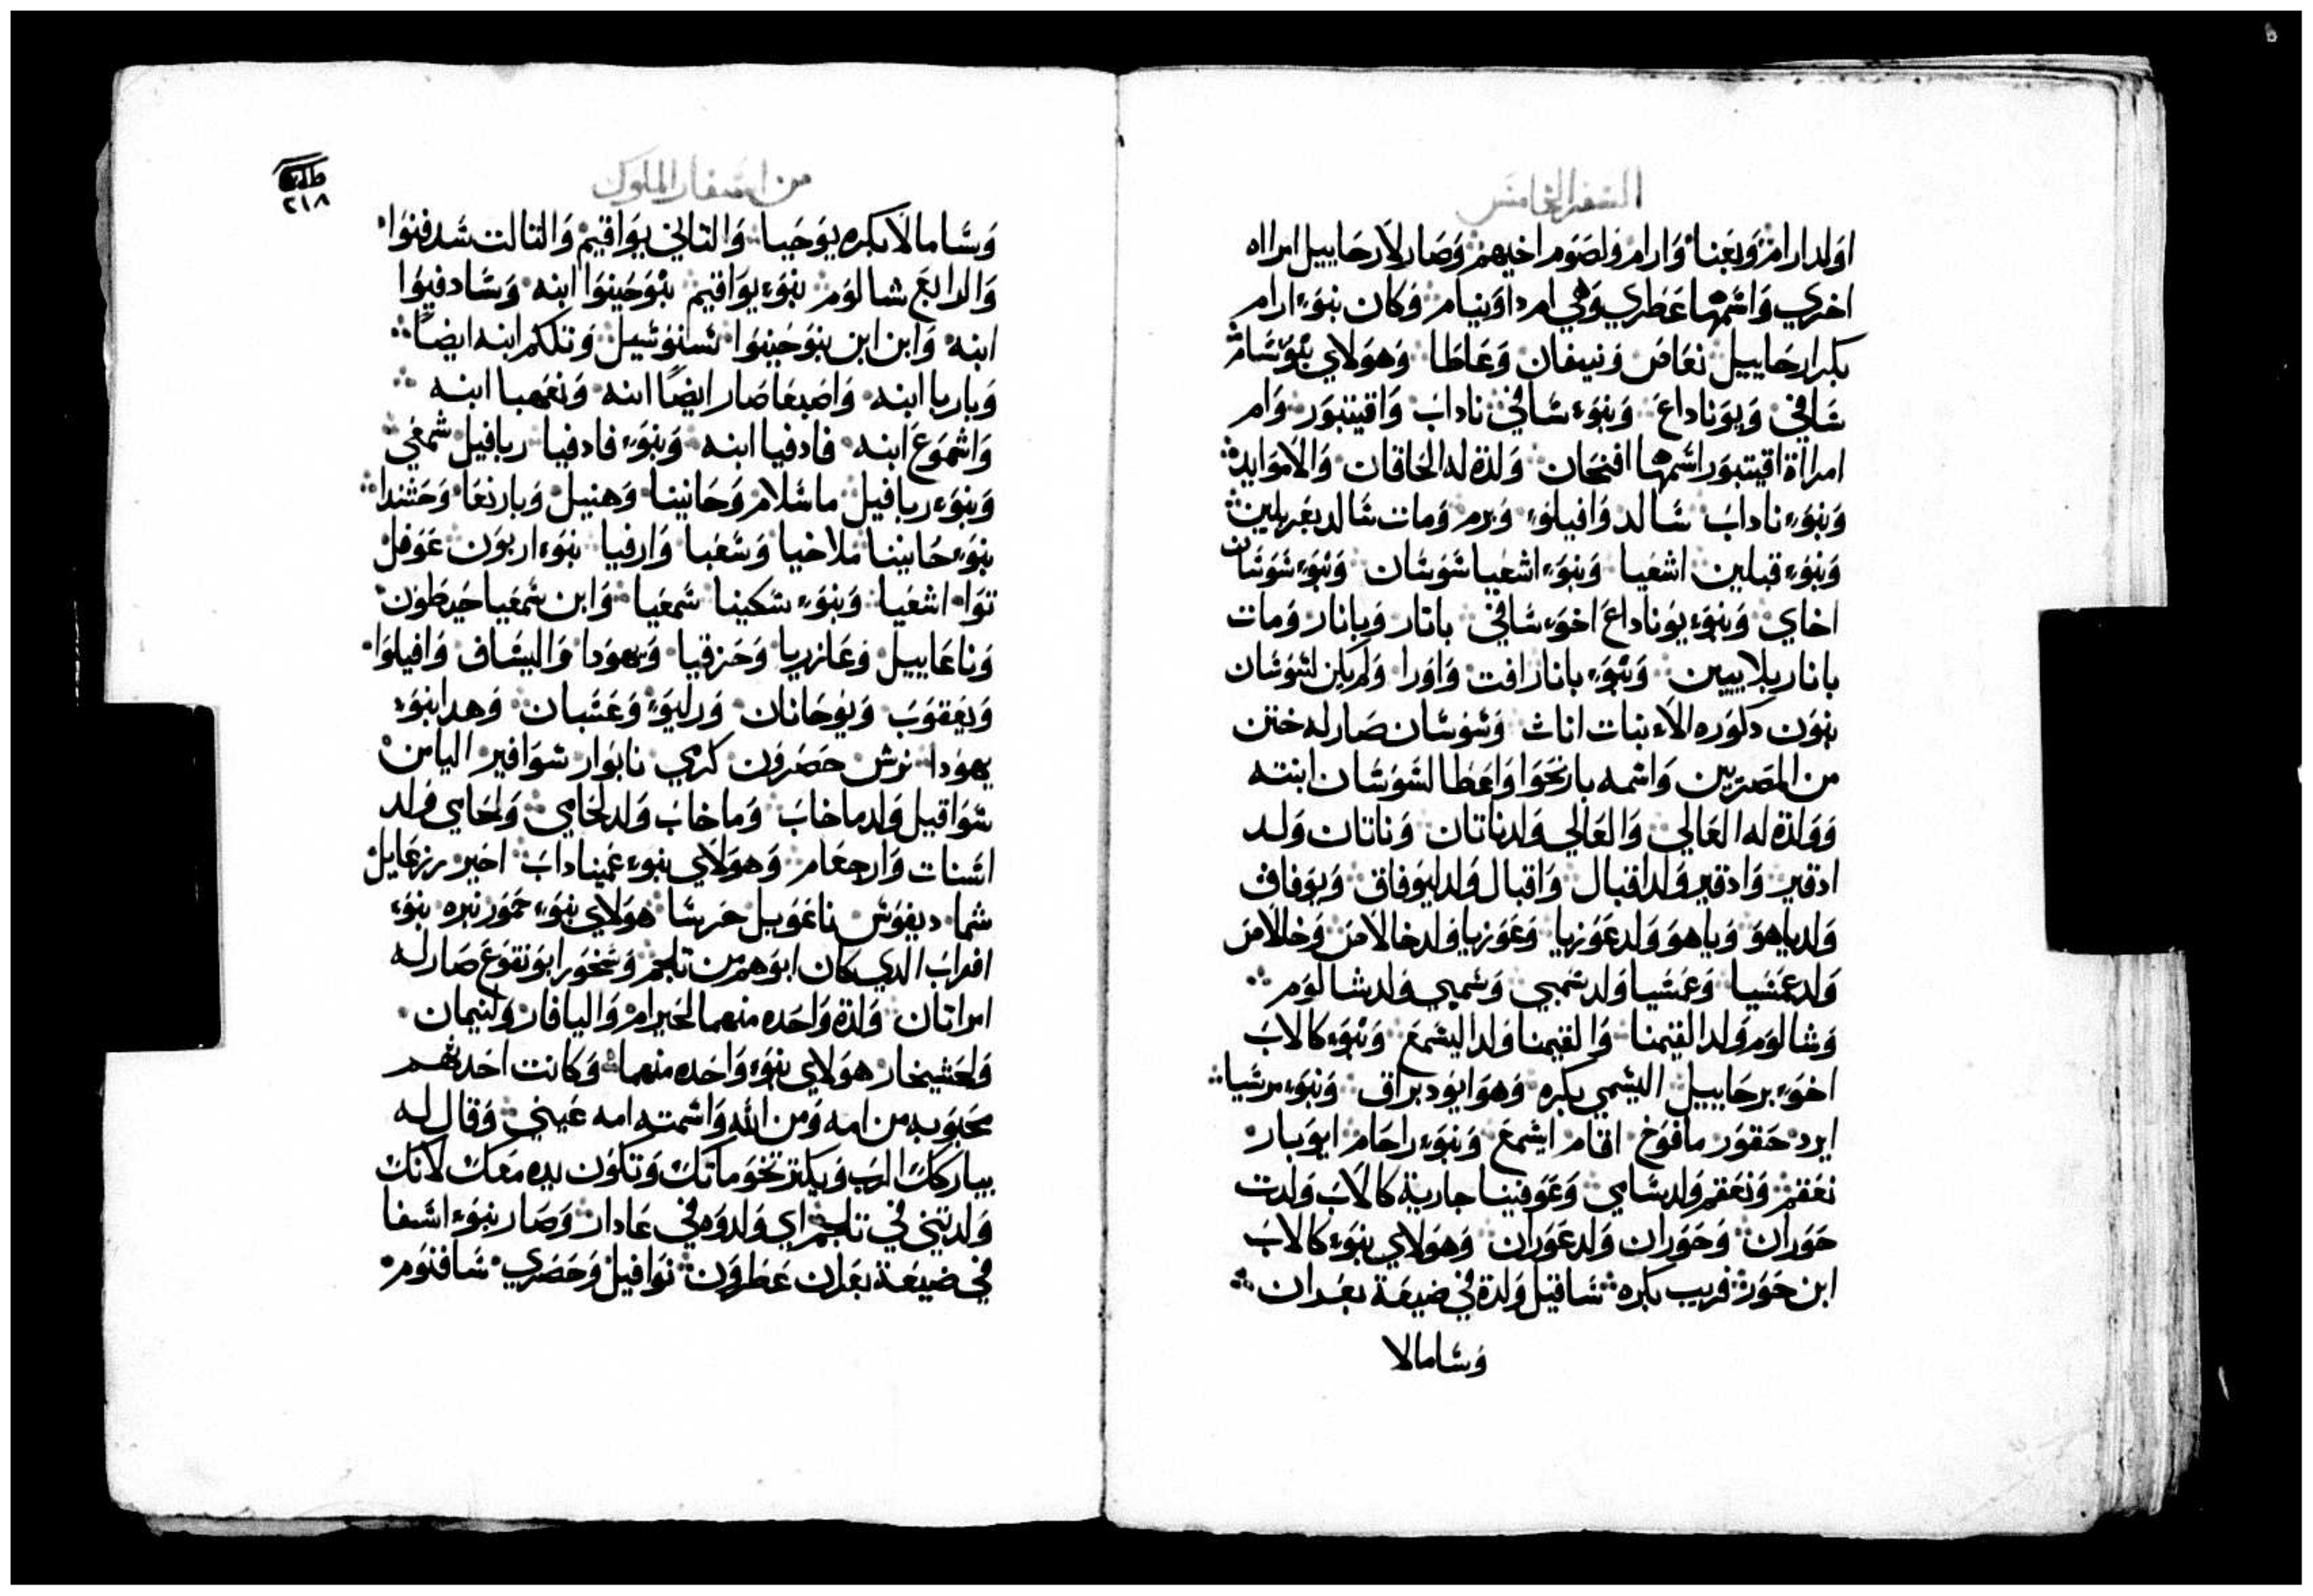 السفر الخامس
اولد ارام وبعنا وارام ولصوم اخيهم وصار لارحاييل امراه
اخري واسمها عطري وهي ام داونيام وكان بنوء ارام
بكر ارحاييل نعاض ونيفان وعاطا وهولاي بنو شام
شافي ويوناداع وبنوء شافي ناداب واقيتبور وام
امراة اقيتبور اسمها افنحان ولدة له الخاقان والاموايد
وبنوء ناداب شالد وافيلوء وبرم ومات شالد بغير بلين
وبنوء قبلين اشعيا وبنوء اشعيا شوشان وبنوء شوشان
اخاي وبنوء يوناداع اخوء شافي باتار وباناز ومات
باناز بلا بيين وبنوء باناز افت واورا ولم يكن لشوشان
بنون دكوره الاء بنات اناث وشوشان صار له ختن
من المصريين واسمه بارنحوا واعطا لشوشان ابنته
وولدة له العالي والعالي ولد ناتان وناتان ولد
ادقير وادقير ولد اقبال واقبال ولد ايوفاق ويوفاق
ولد ياهو وياهو ولد عوزيا وعوزيا ولد خالامن وخالامن
ولد عمشيا وعمشيا ولد شمبي وشمبي ولد شالوم
وشالوم ولد القيمنا والقيمنا ولد اليشمع وبنوء كالاب
اخوء برحاييل اليشمي بكره وهو ابود براق وبنوء مرشيا
ايرد حقور مافوخ اقام ايشمع وبنوء راحام ابوبار
نعقم ونعقم ولد شامي وعوفينا جارية كالاب ولدت
حوران وحوران ولد عوران وهولاي بنوء كالاب
ابن حور قريب بكره شاقيل ولدة في ضيعة بعدان
وشامالا
من اسفار الملوك
٢١٨
وشامالا بكره يوحيا والتاني يواقيم والتالت شدفنوا
والرابع شالوم بنوء يواقيم بنوحينوا ابنه وشادفيوا
ابنه وابن ابن بنوحينوا شنوتييل وتلكم ابنه ايضا
وباريا ابنه واضبعا صار ايضا ابنه ونعهبا ابنه
واشموع ابنه فادفيا ابنه وبنوء فادفيا ربافيل شمعي
وبنوء ربافيل ماشلام وحانينا وهنيل وبارنعا وحشندا
بنوء حانينا ملاخيا وشعبا وارفيا بنوء اربون عوفل
توا اشعيا وبنوء شكينا شمعيا وابن شمعيا حيطون
وناعاييل وعازريا وحزقيا ويهودا واليشاف وافيلوا
ويعقوب ويوحانان ودليو وعشبان وهدا بنوء
يهودا نرش حضرون كرمي نابوار شوافير اليامن
شواقيل ولد ماخاب وماخاب ولد لحامي ولحامي ولد
اشنات وارجعام وهولاي بنوء عميناداب اخير رزعايل
شما ديفوش ناعويل حرشا هولاي بنوء حمور نبره بنوء
افراب الدي كان ابوهم من تلحم وشحور ابو نقوع صار له
امراتان ولدة واحده منهما لحيرام واليافار ولنيمان
ولعشيخار هولاي بنوء واحده منهما وكانت احدتهم
محبوبه من امه ومن الله واسمته امه عيني وقال له
يباركك الرب ويكتر تخوماتك وتكون يده معك لانك
ولدتيني في تلحم اي ولدوه في عادار وصار بنوء اشفا
في ضيعة بعدان عطرون نوافيل وحضري شافنوم